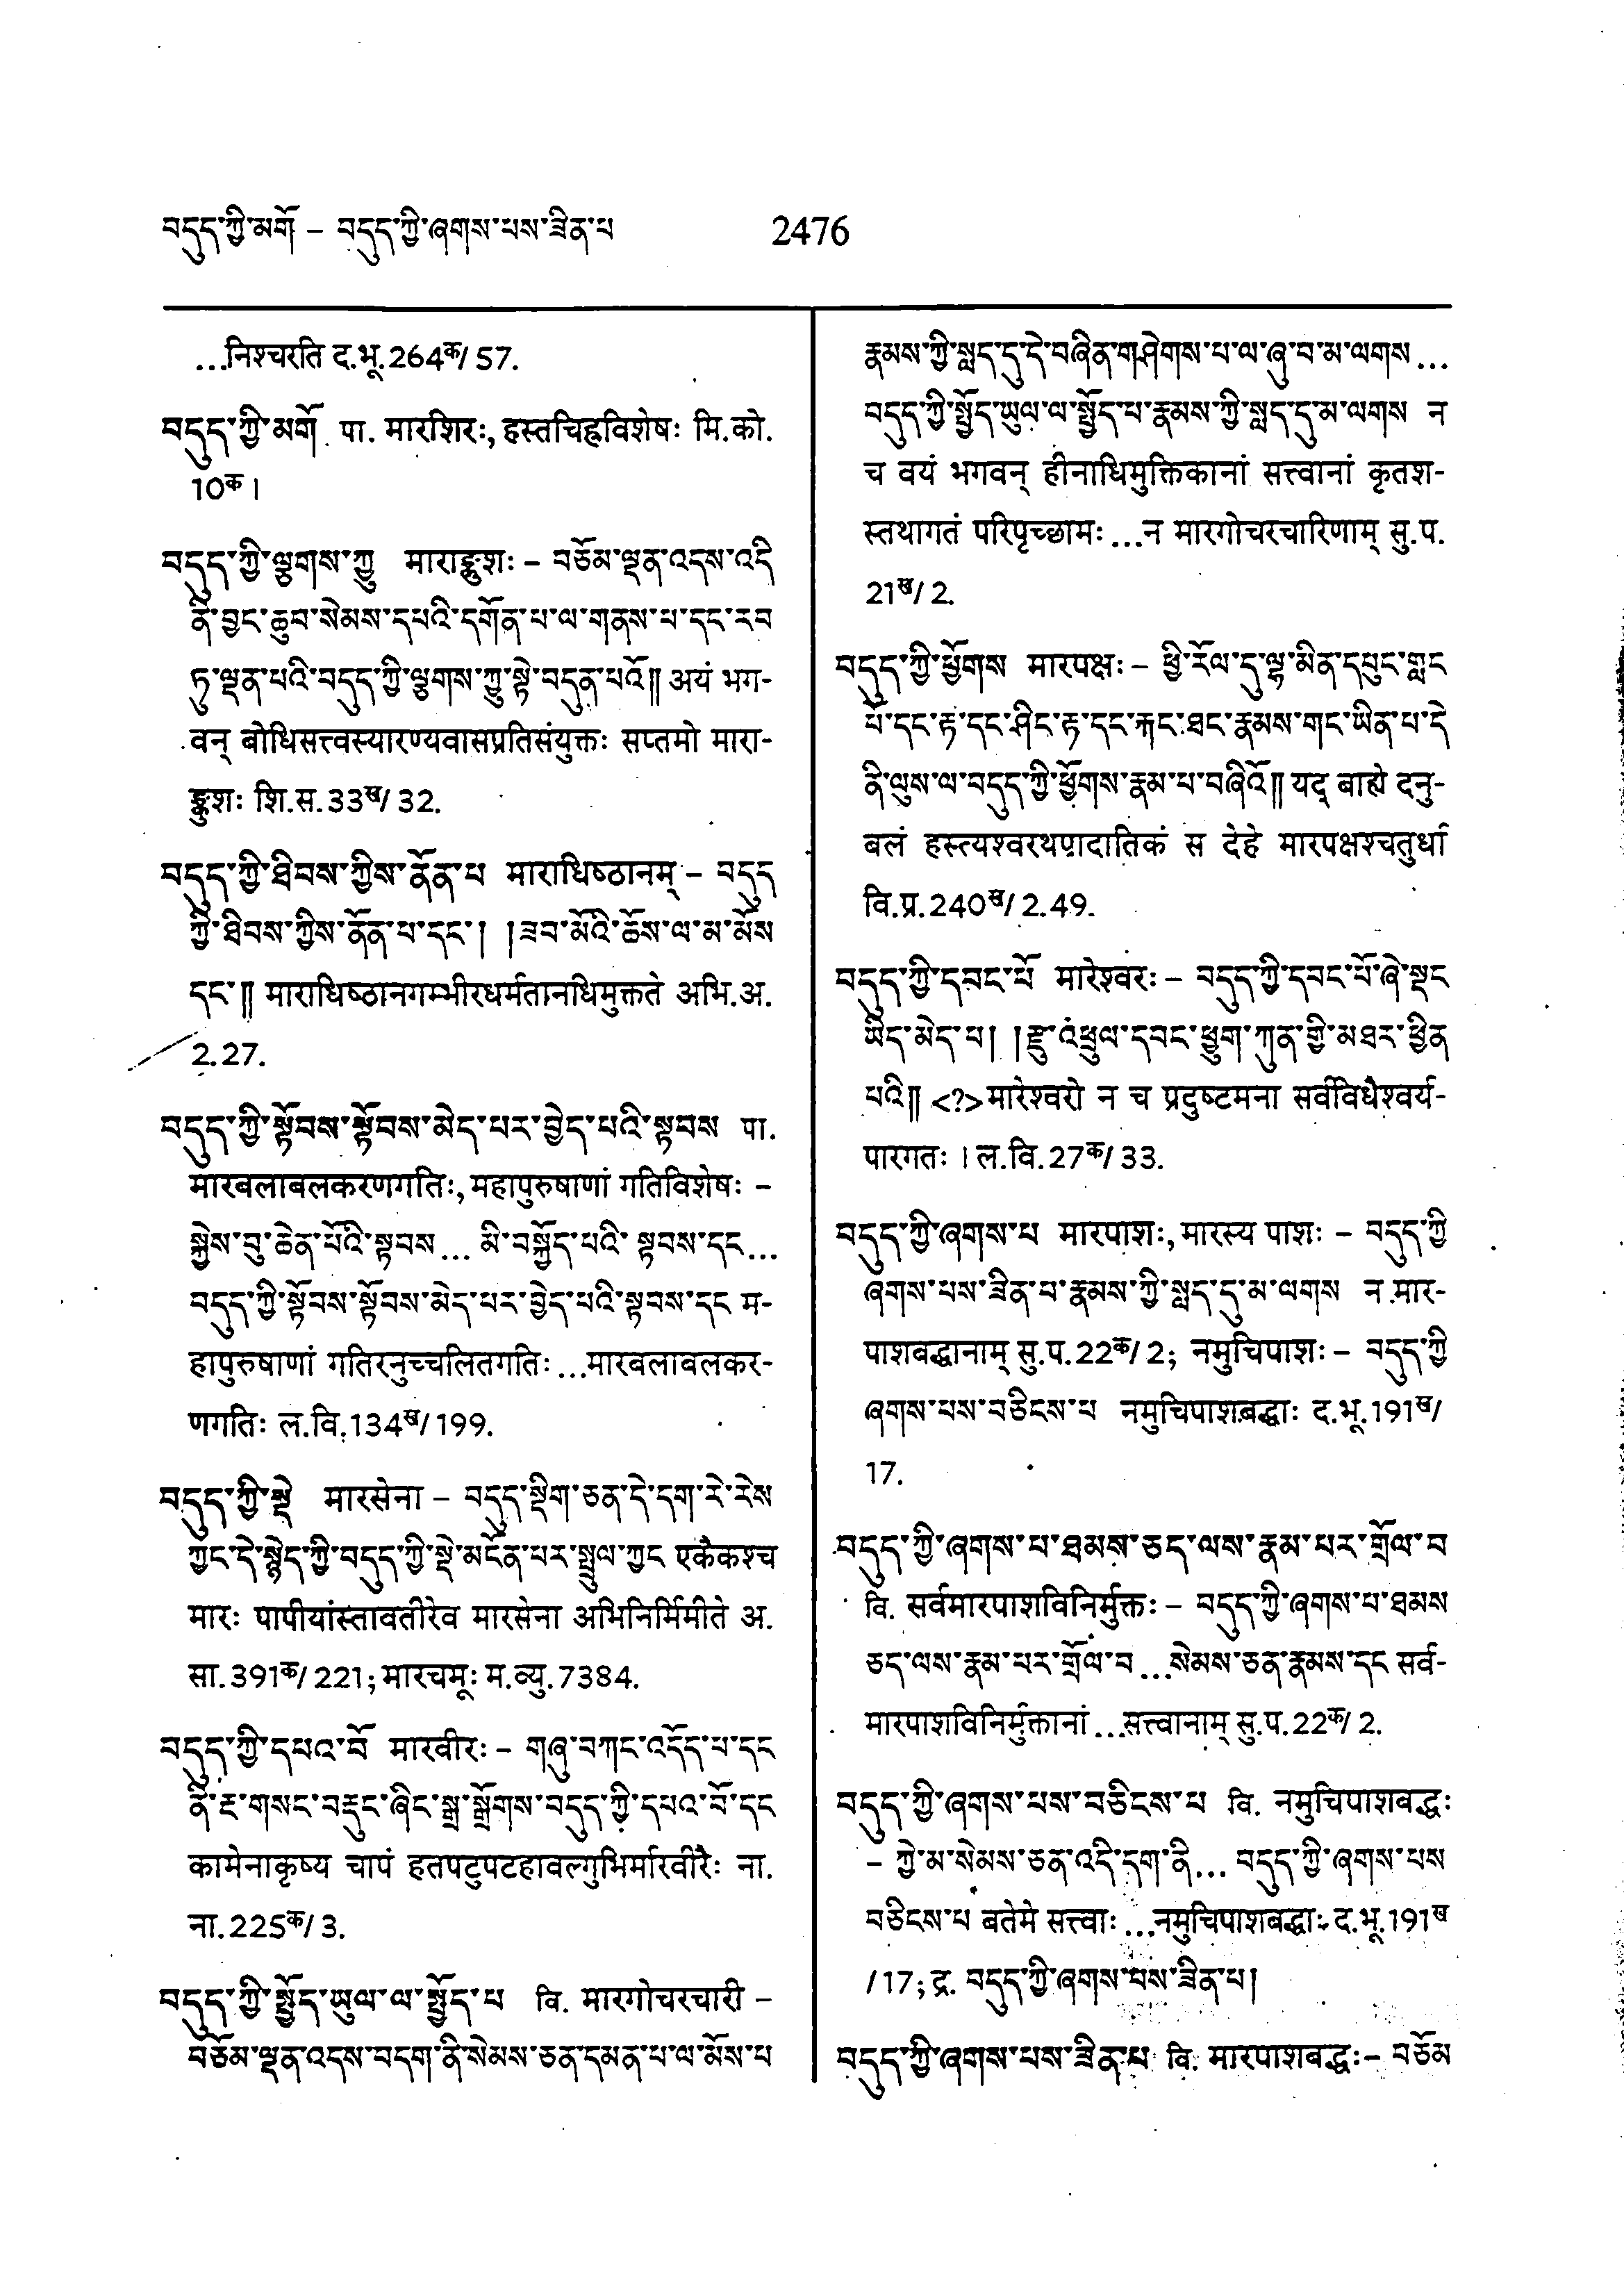 བདུད་ཀྱི་མགོ – བདུད་ཀྱི་ཞགས་པས་ཟིན་པ
2476
...निश्चरति द.भू.264क/57.
བདུད་ཀྱི་མགོ པा. मारशिरः, हस्तचिह्नविशेषः मि.को.
10क।
བདུད་ཀྱི་ལྕགས་ཀྱུ माराङ्कुशः – བཅོམ་ལྡན་འདས་འདི
ནི་བྱང་ཆུབ་སེམས་དཔའི་དགོན་པ་ལ་གནས་པ་དང་རབ
ཏུ་ལྡན་པའི་བདུད་ཀྱི་ལྕགས་ཀྱུ་སྟེ་བདུན་པའོ༎ अयं भग-
वन् बोधिसत्त्वस्यारण्यवासप्रतिसंयुक्तः सप्तमो मारा-
ङ्कुशः शि.स.33ख/32.
བདུད་ཀྱི་ཐིབས་ཀྱིས་ནོན་པ माराधिष्ठानम् – བདུད
ཀྱི་ཐིབས་ཀྱིས་ནོན་པ་དང་། །ཟབ་མོའི་ཆོས་ལ་མ་མོས
དང་༎ माराधिष्ठानगम्भीरधर्मतानधिमुक्तते अभि.अ.
2.27.
བདུད་ཀྱི་སྟོབས་སྟོབས་མེད་པར་བྱེད་པའི་སྟབས पा.
मारबलाबलकरणगतिः, महापुरुषाणां गतिविशेषः –
སྐྱེས་བུ་ཆེན་པོའི་སྟབས... མི་བསྐྱོད་པའི་ སྟབས་དང...
བདུད་ཀྱི་སྟོབས་སྟོབས་མེད་པར་བྱེད་པའི་སྟབས་དང म-
हापुरुषाणां गतिरनुच्चलितगतिः ...मारबलाबलकर-
णगतिः ल.वि.134ख/199.
བདུད་ཀྱི་སྡེ मारसेना – བདུད་སྡིག་ཅན་དེ་དག་རེ་རེས
ཀྱང་དེ་སྙེད་ཀྱི་བདུད་ཀྱི་སྡེ་མངོན་པར་སྤྲུལ་ཀྱང एकैकश्च
मारः पापीयांस्तावतीरेव मारसेना अभिनिर्मिमीते अ.
सा.391क/221; मारचमूः म.व्यु.7384.
བདུད་ཀྱི་དཔའ་བོ मारवीरः – གཞུ་བཀང་འདོད་པ་དང
ནི་རྔ་གསང་བརྡུང་ཞིང་སྒྲ་སྒྲོགས་བདུད་ཀྱི་དཔའ་བོ་དང
कामेनाकृष्य चापं हतपटुपटहावल्गुभिर्मारवीरैः ना.
ना.225क/3.
བདུད་ཀྱི་སྤྱོད་ཡུལ་ལ་སྤྱོད་པ वि. मारगोचरचारी –
བཅོམ་ལྡན་འདས་བདག་ནི་སེམས་ཅན་དམན་པ་ལ་མོས་པ
རྣམས་ཀྱི་སླད་དུ་དེ་བཞིན་གཤེགས་པ་ལ་ཞུ་བ་མ་ལགས...
བདུད་ཀྱི་སྤྱོད་ཡུལ་ལ་སྤྱོད་པ་རྣམས་ཀྱི་སླད་དུ་མ་ལགས न
च वयं भगवन् हीनाधिमुक्तिकानां सत्त्वानां कृतश-
स्तथागतं परिपृच्छामः ...न मारगोचरचारिणाम् सु.प.
21ख/2.
བདུད་ཀྱི་ཕྱོགས मारपक्षः – ཕྱི་རོལ་དུ་ལྷ་མིན་དཔུང་གླང
པོ་དང་རྟ་དང་ཤིང་རྟ་དང་རྐང་ཐང་རྣམས་གང་ཡིན་པ་དེ
ནི་ལུས་ལ་བདུད་ཀྱི་ཕྱོགས་རྣམ་པ་བཞིའོ༎ यद् बाह्ये दनु-
बलं हस्त्यश्वरथपादातिकं स देहे मारपक्षश्चतुर्धा
वि.प्र.240ख/2.49.
བདུད་ཀྱི་དབང་པོ मारेश्वरः – བདུད་ཀྱི་དབང་པོ་ཞེ་སྡང
ཡིད་མེད་པ། །རྫུ་འཕྲུལ་དབང་ཕྱུག་ཀུན་གྱི་མཐར་ཕྱིན
པའི༎ <?>मारेश्वरो न च प्रदुष्टमना सर्वविधैश्वर्य-
पारगतः । ल.वि.27क/33.
བདུད་ཀྱི་ཞགས་པ मारपाशः, मारस्य पाशः – བདུད་ཀྱི
ཞགས་པས་ཟིན་པ་རྣམས་ཀྱི་སླད་དུ་མ་ལགས न मार-
पाशबद्धानाम् सु.प.22क/2; नमुचिपाशः – བདུད་ཀྱི
ཞགས་པས་བཅིངས་པ नमुचिपाशबद्धाः द.भू.191ख/
17.
བདུད་ཀྱི་ཞགས་པ་ཐམས་ཅད་ལས་རྣམ་པར་གྲོལ་བ
वि. सर्वमारपाशविनिर्मुक्तः – བདུད་ཀྱི་ཞགས་པ་ཐམས
ཅད་ལས་རྣམ་པར་གྲོལ་བ ...སེམས་ཅན་རྣམས་དང सर्व-
मारपाशविनिर्मुक्तानां ...सत्त्वानाम् सु.प.22क/2.
བདུད་ཀྱི་ཞགས་པས་བཅིངས་པ वि. नमुचिपाशबद्धः
– ཀྱེ་མ་སེམས་ཅན་འདི་དག་ནི... བདུད་ཀྱི་ཞགས་པས
བཅིངས་པ बतेमे सत्त्वाः ...नमुचिपाशबद्धाः द.भू.191ख
/17; द्र. བདུད་ཀྱི་ཞགས་པས་ཟིན་པ།
བདུད་ཀྱི་ཞགས་པས་ཟིན་པ वि. मारपाशबद्धः – བཅོམ